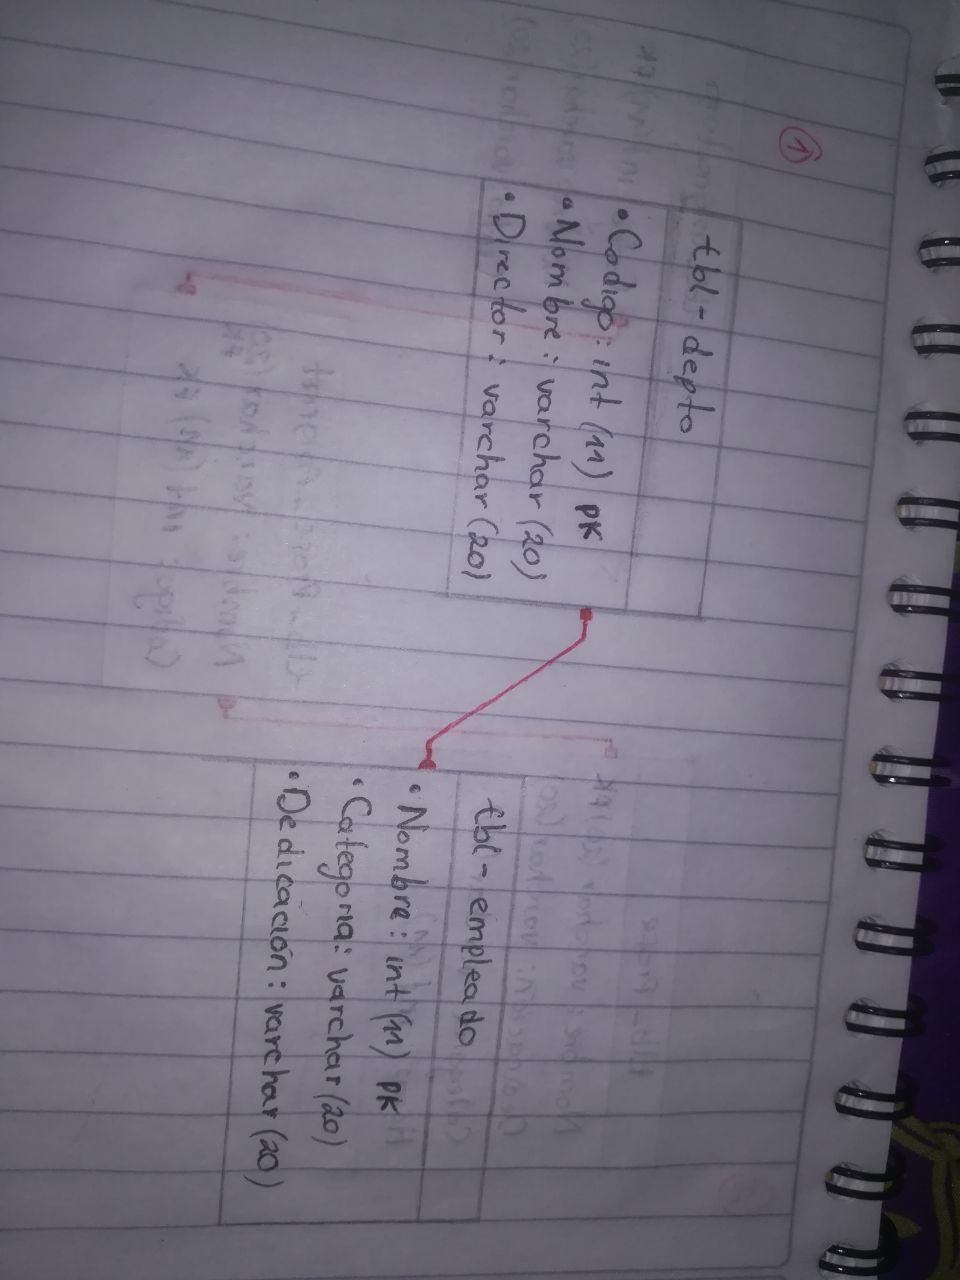 1
tbl-depto
• Codigo: int (11) PK
• Nombre: varchar (20)
• Director: varchar (20)
tbl-empleado
• Nombre: int (11) PK
• Categoria: varchar (20)
• Dedicación: varchar (20)